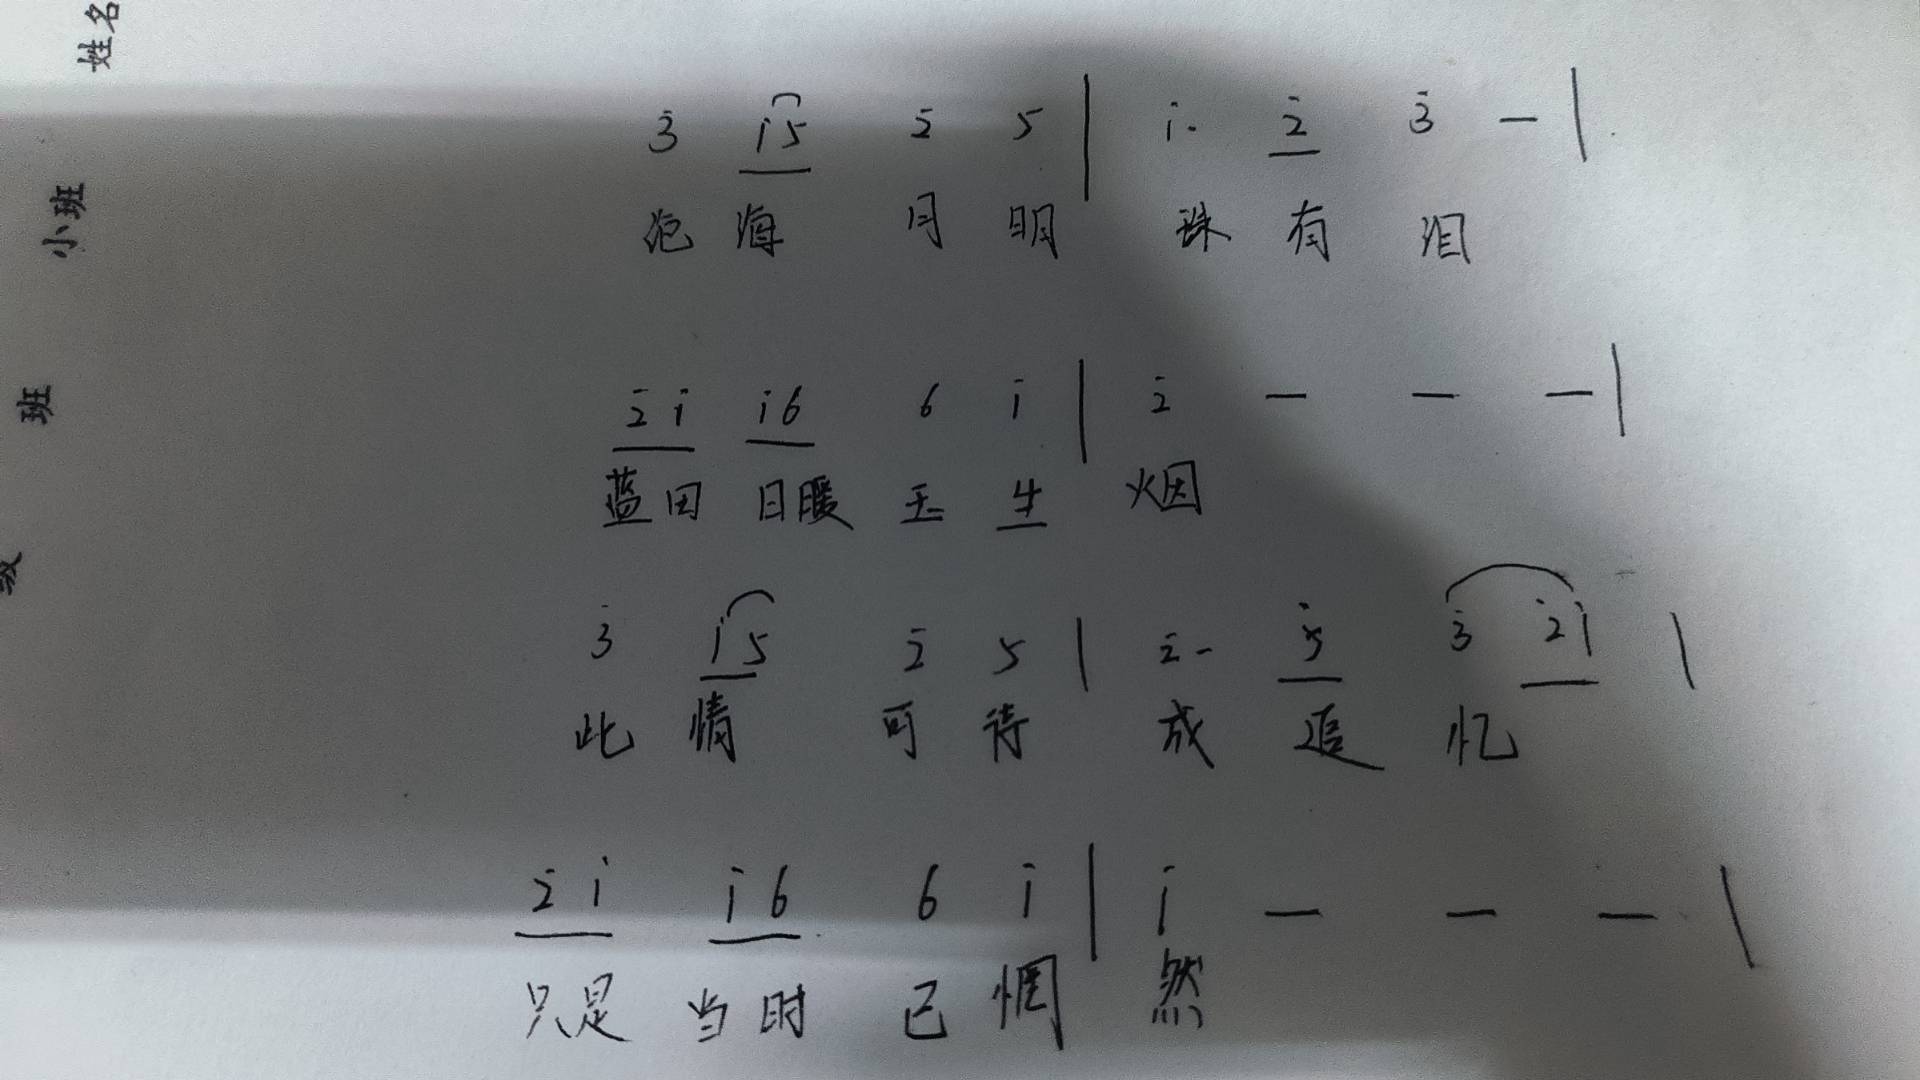 姓名
小班
班
级
3̇ i5 2̇ 5 | i· 2̇ 3̇ — |
沧 海 月 明 珠 有 泪
2̇ i i6 6 i | 2̇ — — — |
蓝田 日暖 玉 生 烟
3̇ i5 2̇ 5 | 2̇· 5̇ 3̇ 2̇i |
此 情 可 待 成 追 忆
2̇ i i6 6 i | i — — — |
只是 当时 已 惘 然